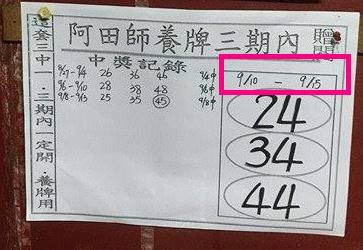 阿田師養牌三期內
贈閱
連套三中一．三期內一定開．養牌用
中獎記錄
8/7-9/4 26 36 46 9/4中
9/6-9/10 28 38 48 9/6中
9/8-9/13 25 35 45 9/8中
9/10 - 9/15
24
34
44